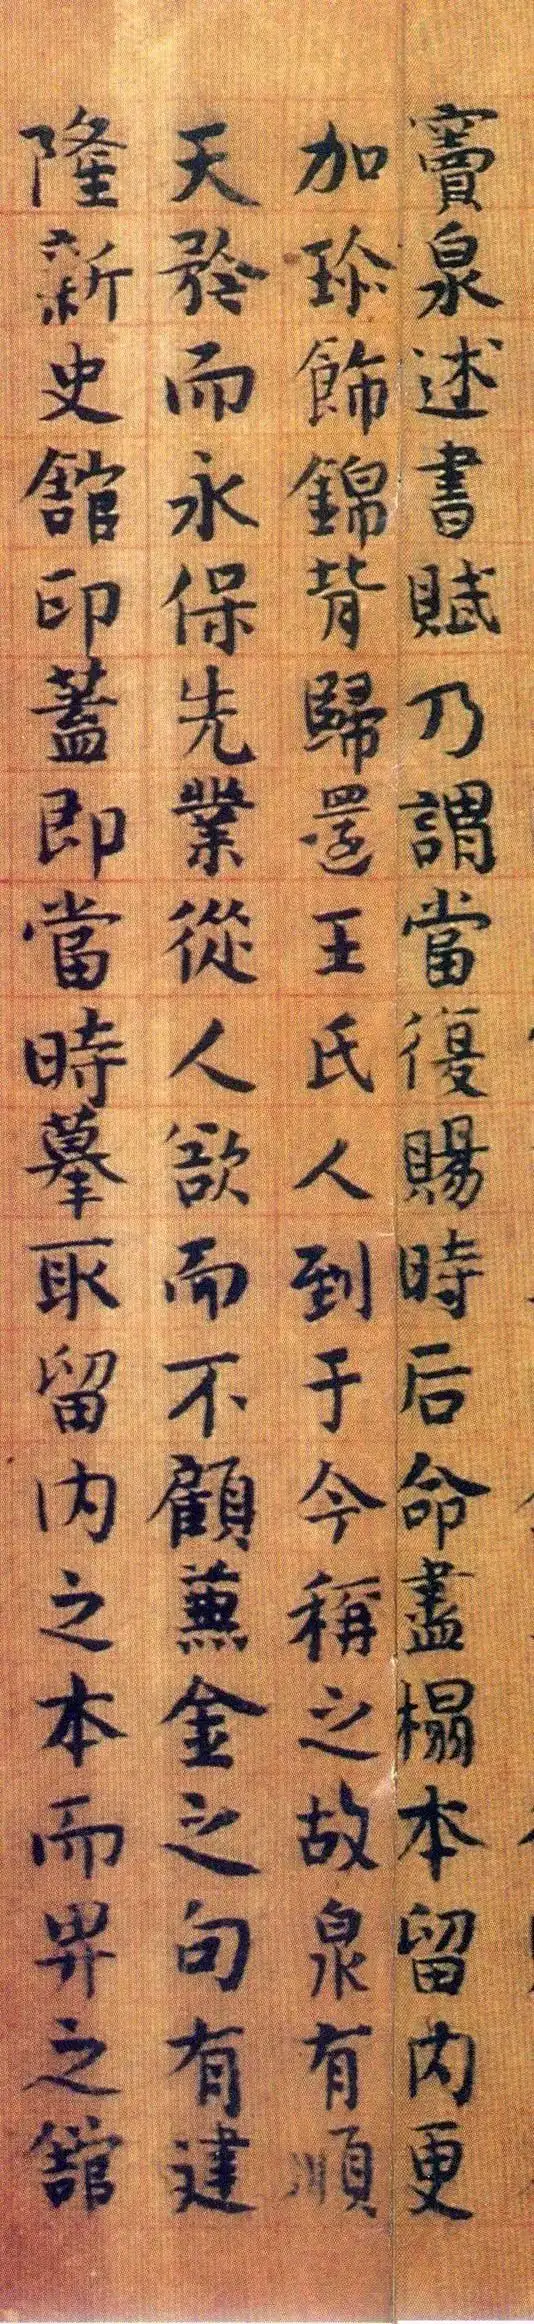 竇泉述書賦乃謂當復賜時后命盡榻本留內更
加珍飾錦背歸還王氏人到于今稱之故泉有順
天矜而永保先業從人欲而不顧兼金之句有建
隆新史舘印蓋即當時摹取留內之本而畀之舘